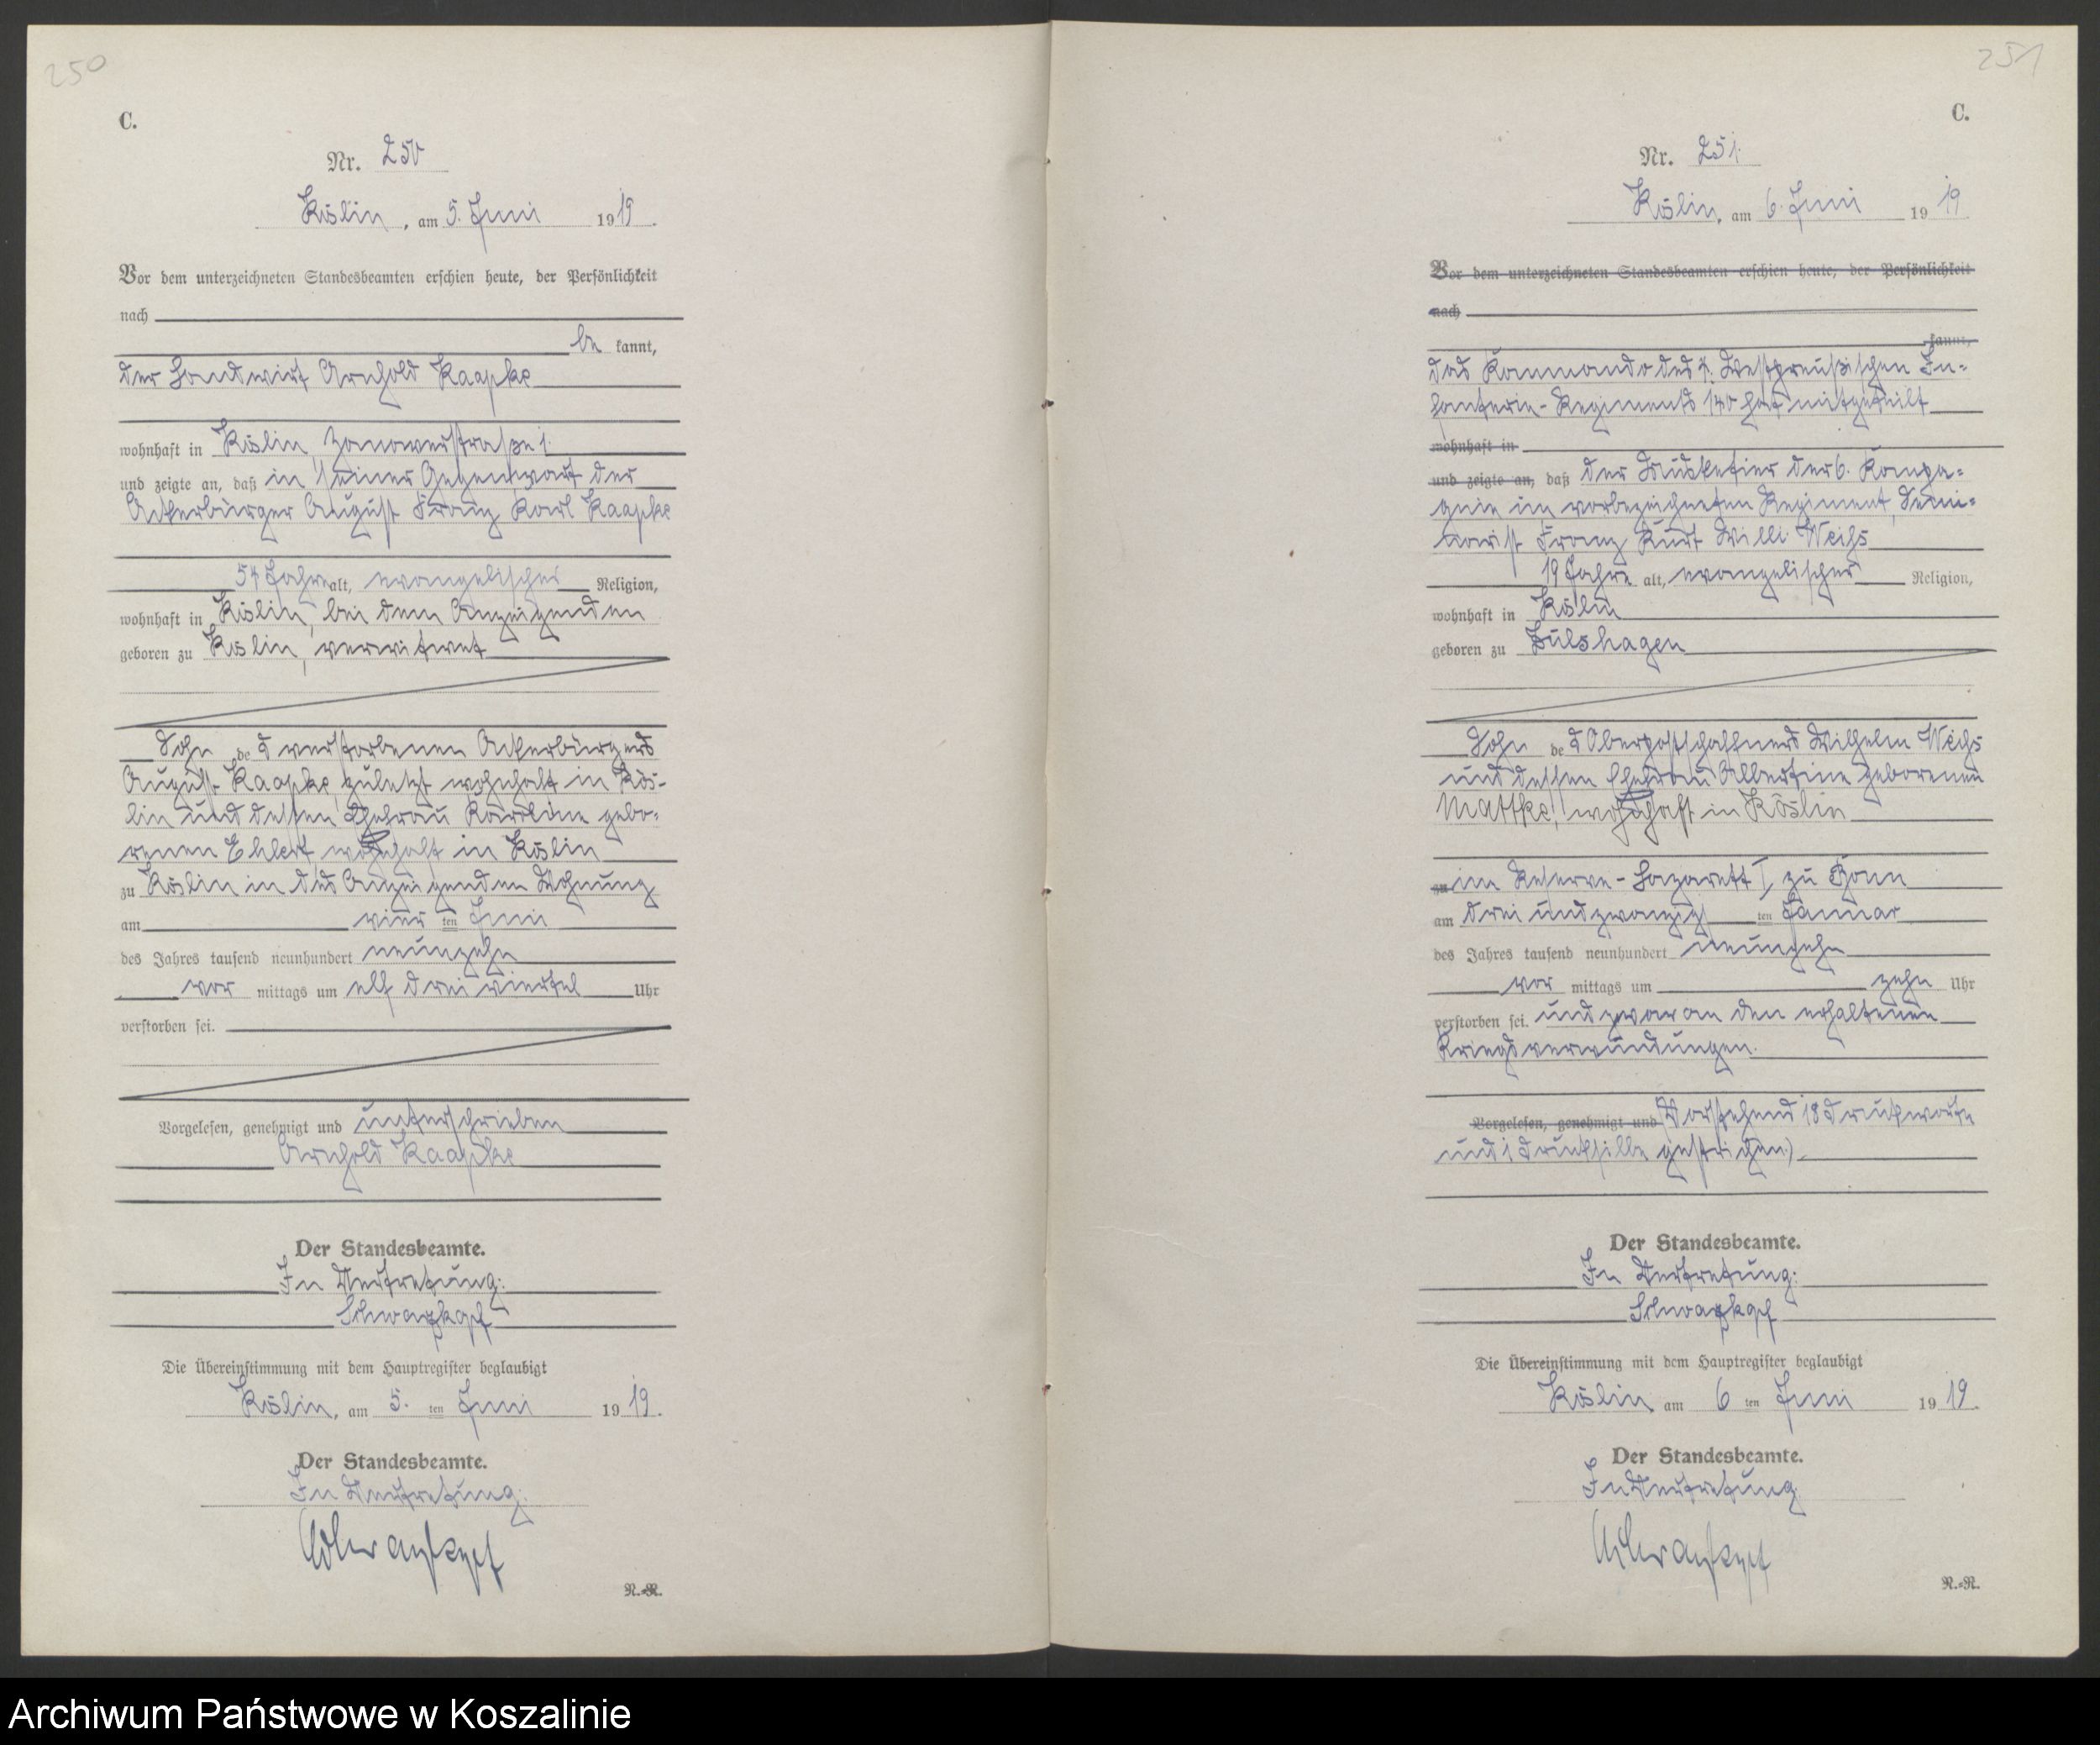 250
C.
Nr. 250
Köslin, am 5. Juni 1919.
Vor dem unterzeichneten Standesbeamten erschien heute, der Persönlichkeit
nach
be kannt,
der Landwirt Arnhold Kaapke
wohnhaft in Köslin, Zanowerstraße 1.
und zeigte an, daß in seiner Gegenwart der
Ackerbürger August Franz Karl Kaapke
54 Jahre alt, evangelischer Religion,
wohnhaft in Köslin, bei dem Anzeigenden
geboren zu Köslin, verwitwet
Sohn des verstorbenen Ackerbürgers
August Kaapke, zuletzt wohnhaft in Kös-
lin und dessen Ehefrau Karoline gebo-
renen Ehlert wohnhaft in Köslin
zu Köslin in des Anzeigenden Wohnung
am vier ten Juni
des Jahres tausend neunhundert neunzehn
vor mittags um elf dreiviertel Uhr
verstorben sei.
Vorgelesen, genehmigt und unterschrieben
Arnhold Kaapke
Der Standesbeamte.
In Vertretung:
Schwarzkopf
Die Übereinstimmung mit dem Hauptregister beglaubigt
Köslin, am 5. ten Juni 1919.
Der Standesbeamte.
In Vertretung:
Schwarzkopf
R.-R.
251
C.
Nr. 251.
Köslin, am 6. Juni 1919
Vor dem unterzeichneten Standesbeamten erschien heute, der Persönlichkeit
nach
kannt,
das Kommando des 4. Westpreußischen In-
fanterie-Regiments 140 hat mitgeteilt
wohnhaft in
und zeigte an, daß der Musketier der 6. Kompa-
gnie im vorbezeichneten Regiment, Semi-
narist Franz Kurt Willi Weihs
19 Jahre alt, evangelischer Religion,
wohnhaft in Köslin
geboren zu Zülshagen
Sohn des Oberpostschaffners Wilhelm Weihs
und dessen Ehefrau Albertine geborenen
Mattke, wohnhaft in Köslin
zu im Reserve-Lazarett I, zu Bonn
am dreiundzwanzig ten Januar
des Jahres tausend neunhundert neunzehn
vor mittags um zehn Uhr
verstorben sei. und zwar an den erhaltenen
Kriegsverwundungen.
Vorgelesen, genehmigt und Vorstehend 18 Druckworte
und 1 Drucksilbe gestrichen.)
Der Standesbeamte.
In Vertretung:
Schwarzkopf
Die Übereinstimmung mit dem Hauptregister beglaubigt
Köslin am 6 ten Juni 1919.
Der Standesbeamte.
In Vertretung
Schwarzkopf
R.-R.
Archiwum Państwowe w Koszalinie